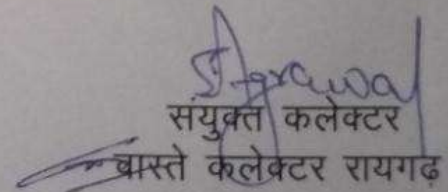 SAgrawal
संयुक्त कलेक्टर
वास्ते कलेक्टर रायगढ